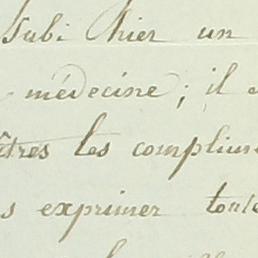 subi hier un
médecine; il
êtres les complim
s exprimer toute